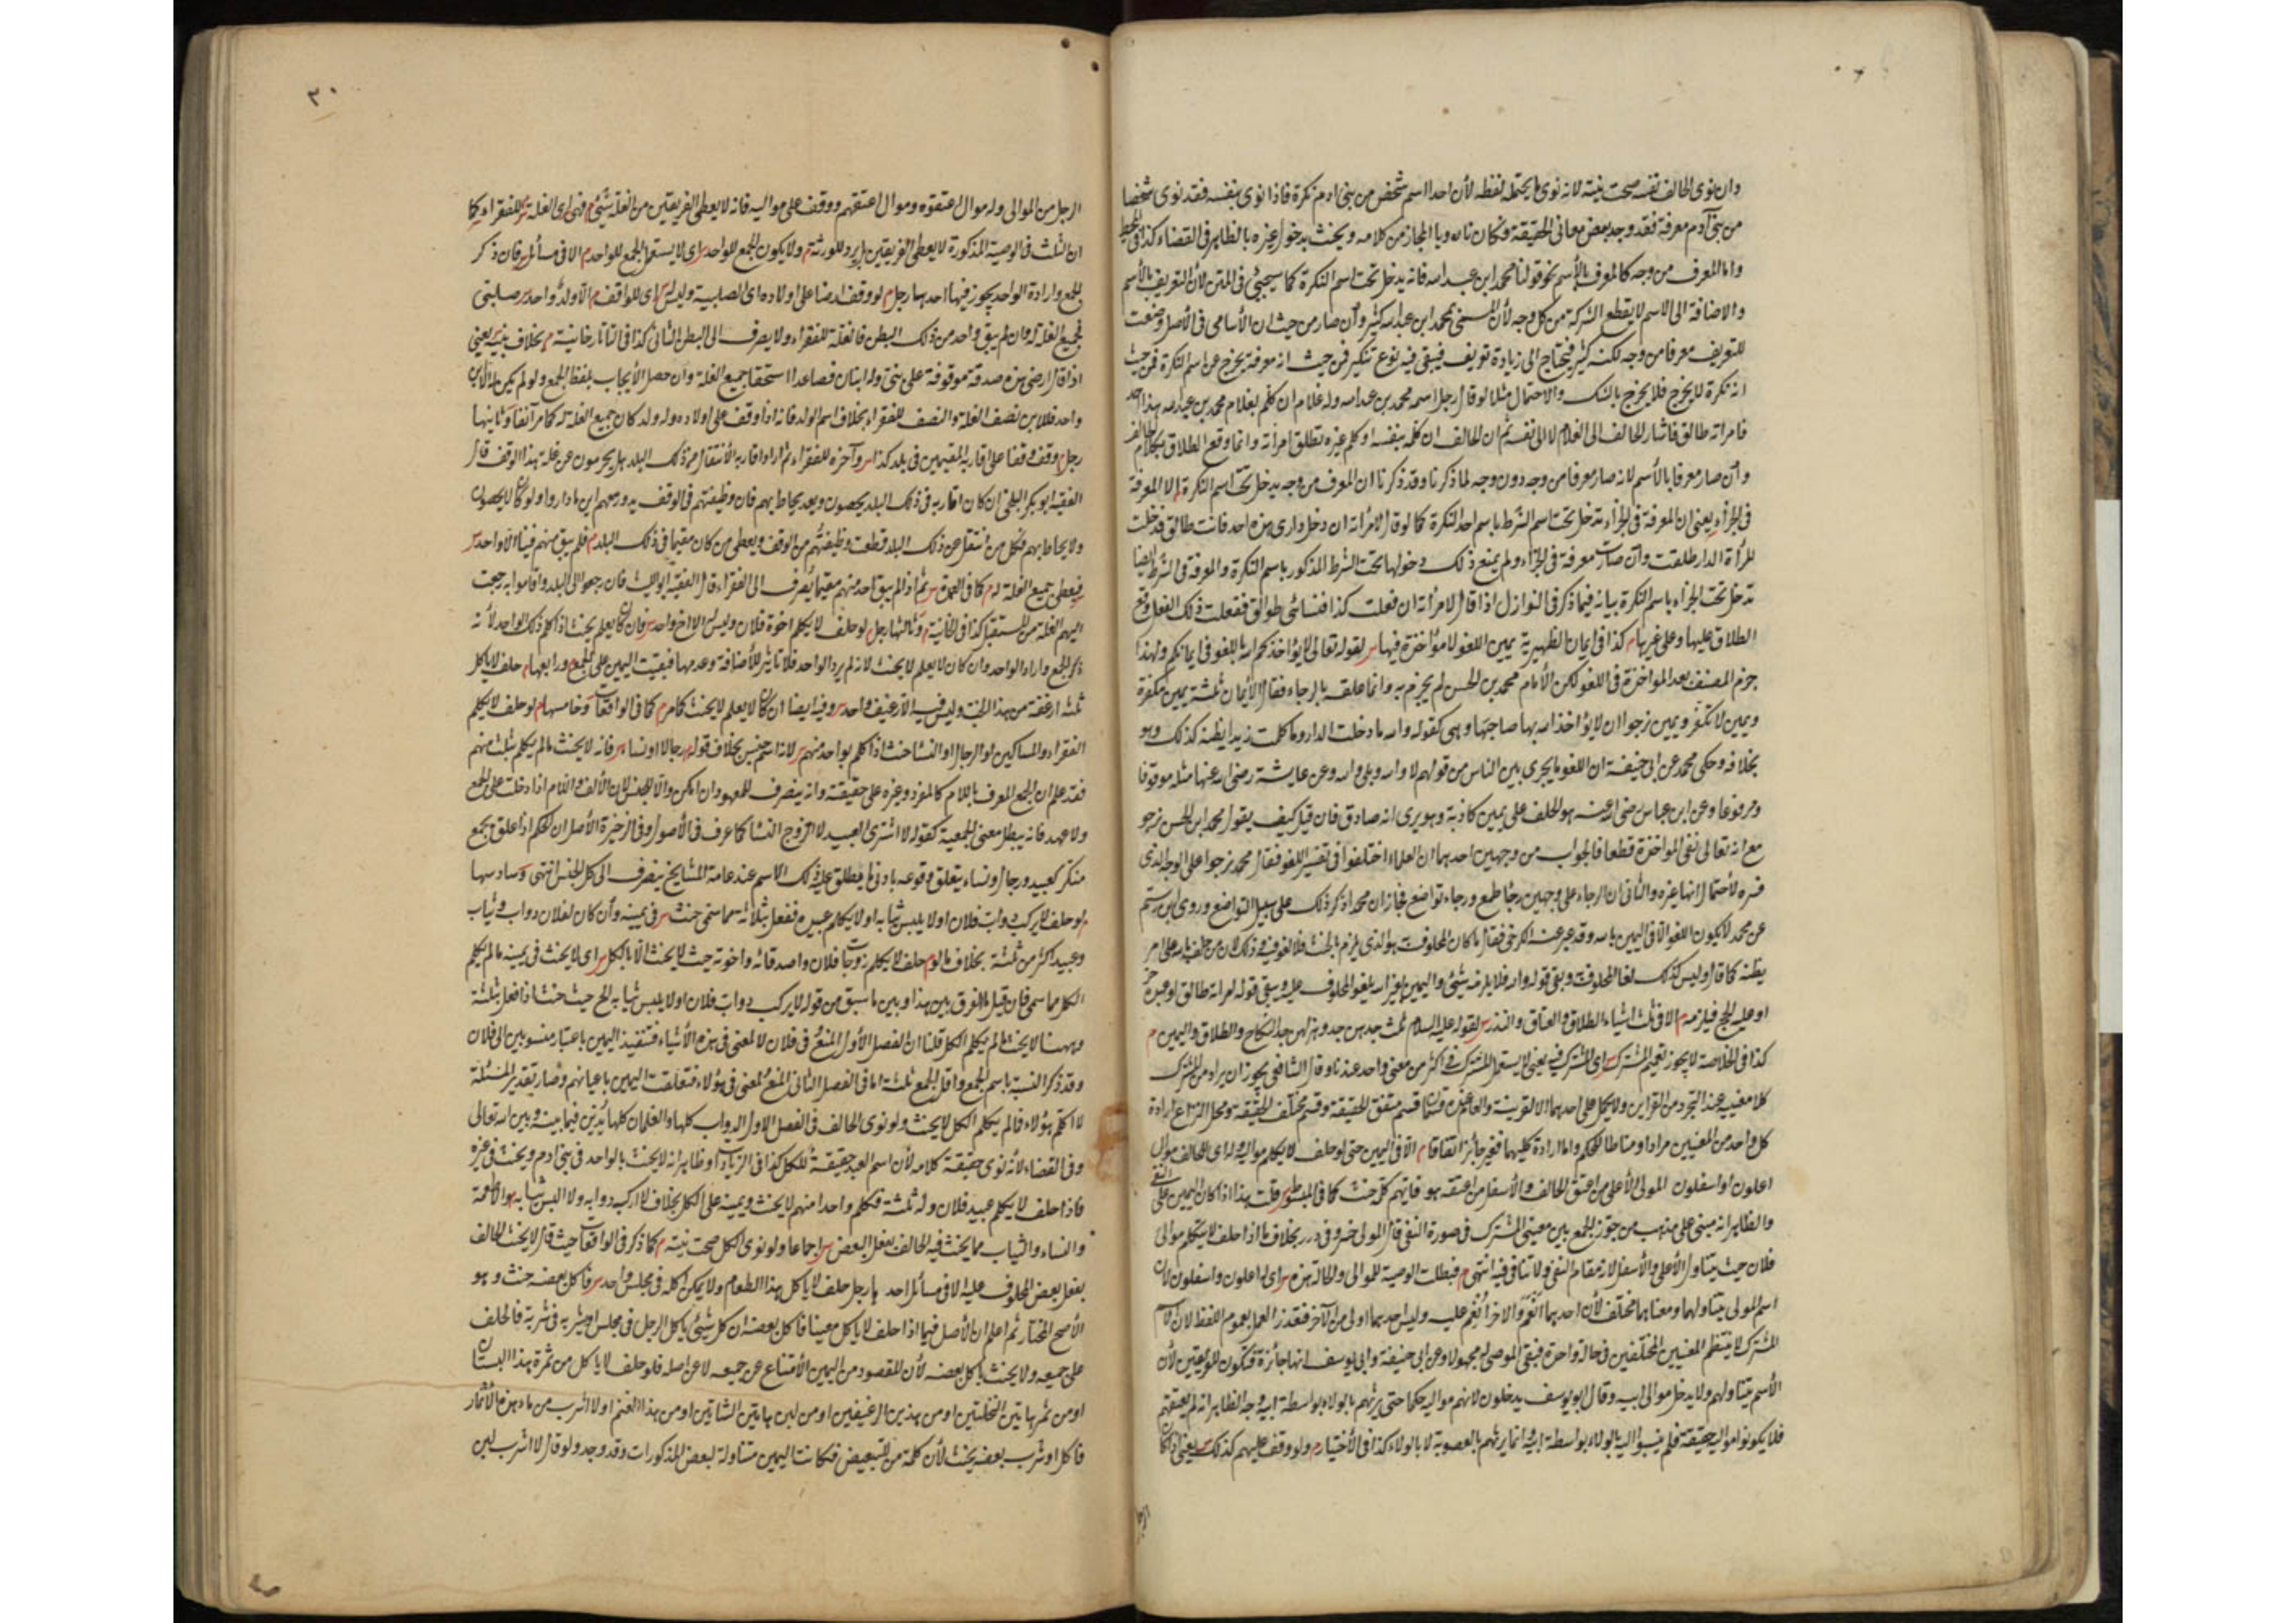 وان نوى الحالف نفسه صحت نيته لانه نوى ما يحتمله لفظه لأن احدا اسم شخص من بنى ادم نكرة فاذا نوى نفسه فقد نوى شخصا
من بنى آدم معرفة فقد وجد بعض معانى الحقيقة وكان ناويا المجاز من كلامه ويحنث بدخول غيره بالظاهر فى القضاء كذا فى المحيط
واما المعرف من وجه كالمعرف بالأسم نحو قولنا محمد ابن عبد الله فانه يدخل تحت اسم النكرة كما سيجيئ فى المتن لأن التعريف بالأسم
والاضافة الى الاسم لا يقطع الشركة من كل وجه لأن المسمى بمحمد ابن عبد الله كثير وأن صار من حيث ان الأسامى فى الأصل وضعت
للتعريف معرفا من وجه لكنه كثير فيحتاج الى زيادة تعريف فيبقى فيه نوع تنكير فمن حيث انه معرفة يخرج عن اسم النكرة فمن حيث
انه نكرة لا يخرج فلا يخرج بالشك والاحتمال مثلا لو قال رجل اسمه محمد بن عبد الله وله غلام ان كلم بغلام محمد بن عبد الله هذا احد
فامراته طالق فاشار الحالف الى الغلام لا الى نفسه ثم ان الحالف ان كلمه بنفسه او كلم غيره تطلق امرأته وانما وقع الطلاق بكلام الحالف
وأن صار معرفا بالأسم لانه صار معرفا من وجه دون وجه لما ذكرنا وقد ذكرنا ان المعرف من وجه يدخل تحت اسم النكرة م الا المعرفة
فى الجزاء يعنى ان المعرفة فى الجزاء تدخل تحت اسم الشرط باسم احد النكرة كما لو قال لامرأته ان دخل دارى هذه احد فانت طالق فدخلت
المرأة الدار طلقت وأن صارت معرفة فى الجزاء ولم يمنع ذلك دخولها تحت الشرط المذكور باسم النكرة والمعرفة فى الشرط ايضا
تدخل تحت الجزاء باسم النكرة بيانه فيما ذكر فى النوازل اذا قال لامرأته ان فعلت كذا فنسائى طوالق ففعلت ذلك الفعل وقع
الطلاق عليها وعلى غيرها م كذا فى ايمان الظهيرية يمين اللغو لا مؤاخذة فيها س لقوله تعالى لا يؤاخذكم الله باللغو فى ايمانكم ولهذا
جزم المصنف بعدم المواخذة فى اللغو لكن الأمام محمد بن الحسن لم يجزم به وانما علقه بالرجاء فقال الأيمان ثلثة يمين مكفرة
ويمين لا تكفر ويمين نرجوا ان لا يؤاخذ الله بها صاحبها وهى كقوله والله ما دخلت الدار وما كلمت زيدا يظنه كذلك وهو
بخلافه وحكى محمد عن ابى حنيفة ان اللغو ما يجرى بين الناس من قولهم لا والله وبلى والله وعن عايشة رضى الله عنها مثله موقوفا
ومرفوعا وعن ابن عباس رضى الله عنه هو الحلف على يمين كاذبة وهو يرى انه صادق فان قيل كيف يقول محمد ابن الحسن نرجو
مع انه تعالى نفى المواخذة قطعا فالجواب من وجهين احدهما ان العلماء اختلفوا فى تفسير اللغو فقال محمد نرجوا على الوجه الذى
فسره لأحتمال انها غيره والثانى ان الرجاء على وجهين رجاء طمع ورجاء تواضع فجاز ان محمدا ذكر ذلك على سبيل التواضع وروى ابن رستم
عن محمد لا يكون اللغو الا فى اليمين بالله وقد عبر عنه الكرخى فقال ما كان المحلوف به هو الذى يلزم بالحنث فلا لغو فيه وذلك لان من حلف بالله على امر
يظنه كما قال وليس كذلك لغا المحلوف به وبقى قوله والله فلا يلزمه شيئ واليمين بغير الله يلغو المحلوف عليه وبقى قوله امراته طالق او عبده حر
او عليه الحج فيلزمه م الا فى ثلث اشياء الطلاق والعتاق والنذر س لقوله عليه السلام ثلث جدهن جد وهزلهن جد النكاح والطلاق واليمين م
كذا فى الخلاصة لا يجوز تعميم المشترك س اى المشترك فيه يعنى لا يستعمل المشترك فى اكثر من معنى واحد عندنا وقال الشافعى يجوز ان يراد من المشترك
كلا معنييه عند التجرد من القراين ولا يحمل على احدهما الا لقرينة والعام عنده قسمان قسم متفق الحقيقة وقسم مختلف الحقيقة ومحل النزاع ارادة
كل واحد من المعنيين مرادا ومناطا للحكم واما ارادة كليهما فغير جائز اتفاقا م الا فى اليمين حتى لو حلف لا يكلم مواليه وله اى للحالف موال
اعلون او اسفلون المولى الأعلى من اعتق الحالف والأسفل من اعتقه هو فايهم كلم حنث كما فى المبسوط س قلت هذا اذا كان اليمين على النفى
والظاهر انه مبنى على مذهب من جوز الجمع بين معنيى المشترك فى صورة النفى قال المولى خسرو فى درر بخلاف ما اذا حلف لا يتكلم موالى
فلان حيث يتناول الأعلى والأسفل لانه مقام النفى ولا تنافى فيه انتهى م فبطلت الوصية للموالى والحالة هذه س اى له اعلون واسفلون لأن
اسم المولى يتناولهما ومعناهما مختلف لأن احدهما انعم والاخر انعم عليه وليس احدهما اولى من الآخر فتعذر العمل بعموم اللفظ لان الاسم
المشترك لا ينتظم المعنيين المختلفين فى حالة واحدة فيبقى الموصى له مجهولا وعن ابى حنيفة وابى يوسف انها جائزة فتكون للفريقين لأن
الأسم يتناولهم ولا يدخل موالى ابيه وقال ابو يوسف يدخلون لانهم مواليه حكما حتى يرثهم بالولاء بواسطة ابيه وجه الظاهر انه لم يعتقهم
فلا يكونوا مواليه حقيقة فلم ينسبوا اليه بالولاء بواسطة ابيه وانما يرثهم بالعصوبة لا بالولاء كذا فى الأختيار م ولو وقف عليهم كذلك س يعنى اذا كان
الرجل
٣٠
الرجل من الموالى وله موال اعتقوه وموال اعتقهم ووقف على مواليه فانه لا يعطى الفريقين من الغلة شيئ م فهى اى الغلة س للفقراء كما
ان الثلث فى الوصية المذكورة لا يعطى الفريقين بل يرد للورثة م ولا يكون الجمع للواحد س اى لا يستعمل الجمع للواحد م الا فى مسائل س فان ذكر
الجمع وارادة الواحد يجوز فيها احدها رجل م لو وقف ارضا على اولاده اى الصلبية وليس له اى للواقف م الا ولد واحد س صلبى
فجميع الغلة له وان لم يبق واحد من ذلك البطن فالغلة للفقراء ولا يصرف الى البطن الثانى كذا فى التاتارخانية م بخلاف بنيه يعنى
اذا قال ارضى هذه صدقة موقوفة على بنى وله ابنان فصاعدا استحقا جميع الغلة وان حصل الأيجاب بلفظ الجمع ولو لم يكن له الا ابن
واحد فللابن نصف الغلة والنصف للفقراء بخلاف اسم الولد فانه اذا وقف على اولاده وله ولد كان جميع الغلة له كما مر آنفا وثانيها
رجل وقف وقفا على اقاربه المقيمين فى بلد كذا س وآخره للفقراء ثم اراد اقاربه الأنتقال من ذلك البلد هل يحرمون عن غلة هذا الوقف قال
الفقيه ابو بكر البلخى ان كان اقاربه فى ذلك البلد يحصون وبعد يحاط بهم فان وظيفتهم فى الوقف يدور معهم اين ما داروا ولو كان لا يحصون
ولا يحاط بهم فكل من انتقل من ذلك البلد قطعت وظيفتهم من الوقف ويعطى من كان مقيما فى ذلك البلد م فلم يبق منهم فيها الا واحد س
فيعطى جميع الغلة له م كما فى العمدة س ثم اذا لم يبق احد منهم مقيما يصرف الى الفقراء قال الفقيه ابو الليث فان رجعوا الى البلد واقاموا به رجعت
اليهم الغلة من المستقبل كذا فى الخانية م وثالثها رجل لو حلف لا يكلم اخوة فلان وليس له الا اخ واحد س فان كان يعلم يحنث اذا كلم ذلك الواحد لأنه
ذكر الجمع واراد الواحد وان كان لا يعلم لا يحنث لانه لم يرد الواحد فلا تاثير للأضافة وعدمها فبقيت اليمين على الجمع م ورابعها م حلف لا ياكل
ثلثة ارغفة من هذا الحب وليس فيه الا رغيف واحد س وفيه ايضا ان كان لا يعلم لا يحنث كما مر م كما فى الواقعات وخامسها م لو حلف لا يكلم
الفقراء والمساكين لو الرجال او النسا حنث اذا كلم بواحد منهم س لانه اسم جنس بخلاف قوله رجالا او نساء س فانه لا يحنث ما لم يكلم بثلث منهم
فقد علم ان الجمع المعرف باللام كالمفرد وغيره على حقيقته وانه ينصرف للمعهود ان امكن والا للجنس لان الألف واللام اذا دخلت على الجمع
ولا عهد فانه يبطل معنى الجمعية كقوله لا اشترى العبيد لا اتزوج النسا كما عرف فى الأصول وفى الذخيرة الأصل ان الحكم اذا علق بجمع
منكر كعبيد ورجال ونساء يتعلق وقوعه بادنى ما يطلق عليه ذلك الاسم عند عامة المشايخ ينصرف الى كل الجنس انتهى وسادسها
م لو حلف لا يركب دواب فلان او لا يلبس ثيابه او لا يكلم عبيده ففعل بثلاثة مما سمى حنث س فى يمينه وأن كان لفلان دواب وثياب
وعبيد اكثر من ثلثة بخلاف ما لو م حلف لا يكلم زوجات فلان واصدقائه واخوته حيث لا يحنث الا بالكل س اى لا يحنث فى يمينه ما لم يكلم
الكل مما سمى فان قيل ما الفرق بين هذا وبين ما سبق من قوله لا يركب دواب فلان او لا يلبس ثيابه الخ حيث حنث اذا فعل بثلثة
وههنا لا يحنث ما لم يكلم الكل قلنا ان الفصل الأول المنع فى فلان لا لمعنى فى هذه الأشياء فتنعقد اليمين باعتبار منسوبين الى فلان
وقد ذكر النسبة باسم الجمع واقل الجمع ثلثة اما فى الفصل الثانى المنع لمعنى فى هؤلاء فتعلقت اليمين باعيانهم وصار تقدير المسئلة
لا اكلم هؤلاء فما لم يكلم الكل لا يحنث ولو نوى الحالف فى الفصل الاول الدواب كلها والغلمان كلها يدين فيما بينه وبين الله تعالى
وفى القضاء لأنه نوى حقيقة كلامه لأن اسم العبيد حقيقة للكل كذا فى الزيادات وظاهر انه لا يحنث بالواحد فى بنى ادم ويحنث فى غيره
فاذا حلف لا يكلم عبيد فلان وله ثلثة فكلم واحدا منهم لا يحنث ويمينه على الكل بخلاف لا اركب دوابه ولا البس ثيابه م والأطعمة
والنساء والثياب مما يحنث فيه الحالف بفعل البعض س اجماعا ولو نوى الكل صحت نيته م كما ذكر فى الواقعات حيث قال لا يحنث الحالف
بفعل بعض المحلوف عليه الا فى مسائل احدها رجل حلف لا ياكل هذا الطعام ولا يمكن اكله فى مجلس واحد س فاكل بعضه حنث وهو
الأصح المختار ثم اعلم ان الأصل فيها اذا حلف لا ياكل معينا فاكل بعضه ان كل شيئ ياكل الرجل فى مجلس او يشربه فى شربة فالحلف
على جميعه ولا يحنث باكل بعضه لأن المقصود من اليمين الأمتناع عن جميعه لا عن اصله فلو حلف لا ياكل من ثمرة هذا البستان
او من ثمر هاتين النخلتين او من هذين الرغيفين او من لبن هاتين الشاتين او من هذا الغنم او لا اشرب من ماء هذه الأنهار
فاكل او شرب بعضه يحنث لأن كلمة من للتبعيض فكانت اليمين متناولة لبعض المذكورات وقد وجد ولو قال لا اشرب لبن